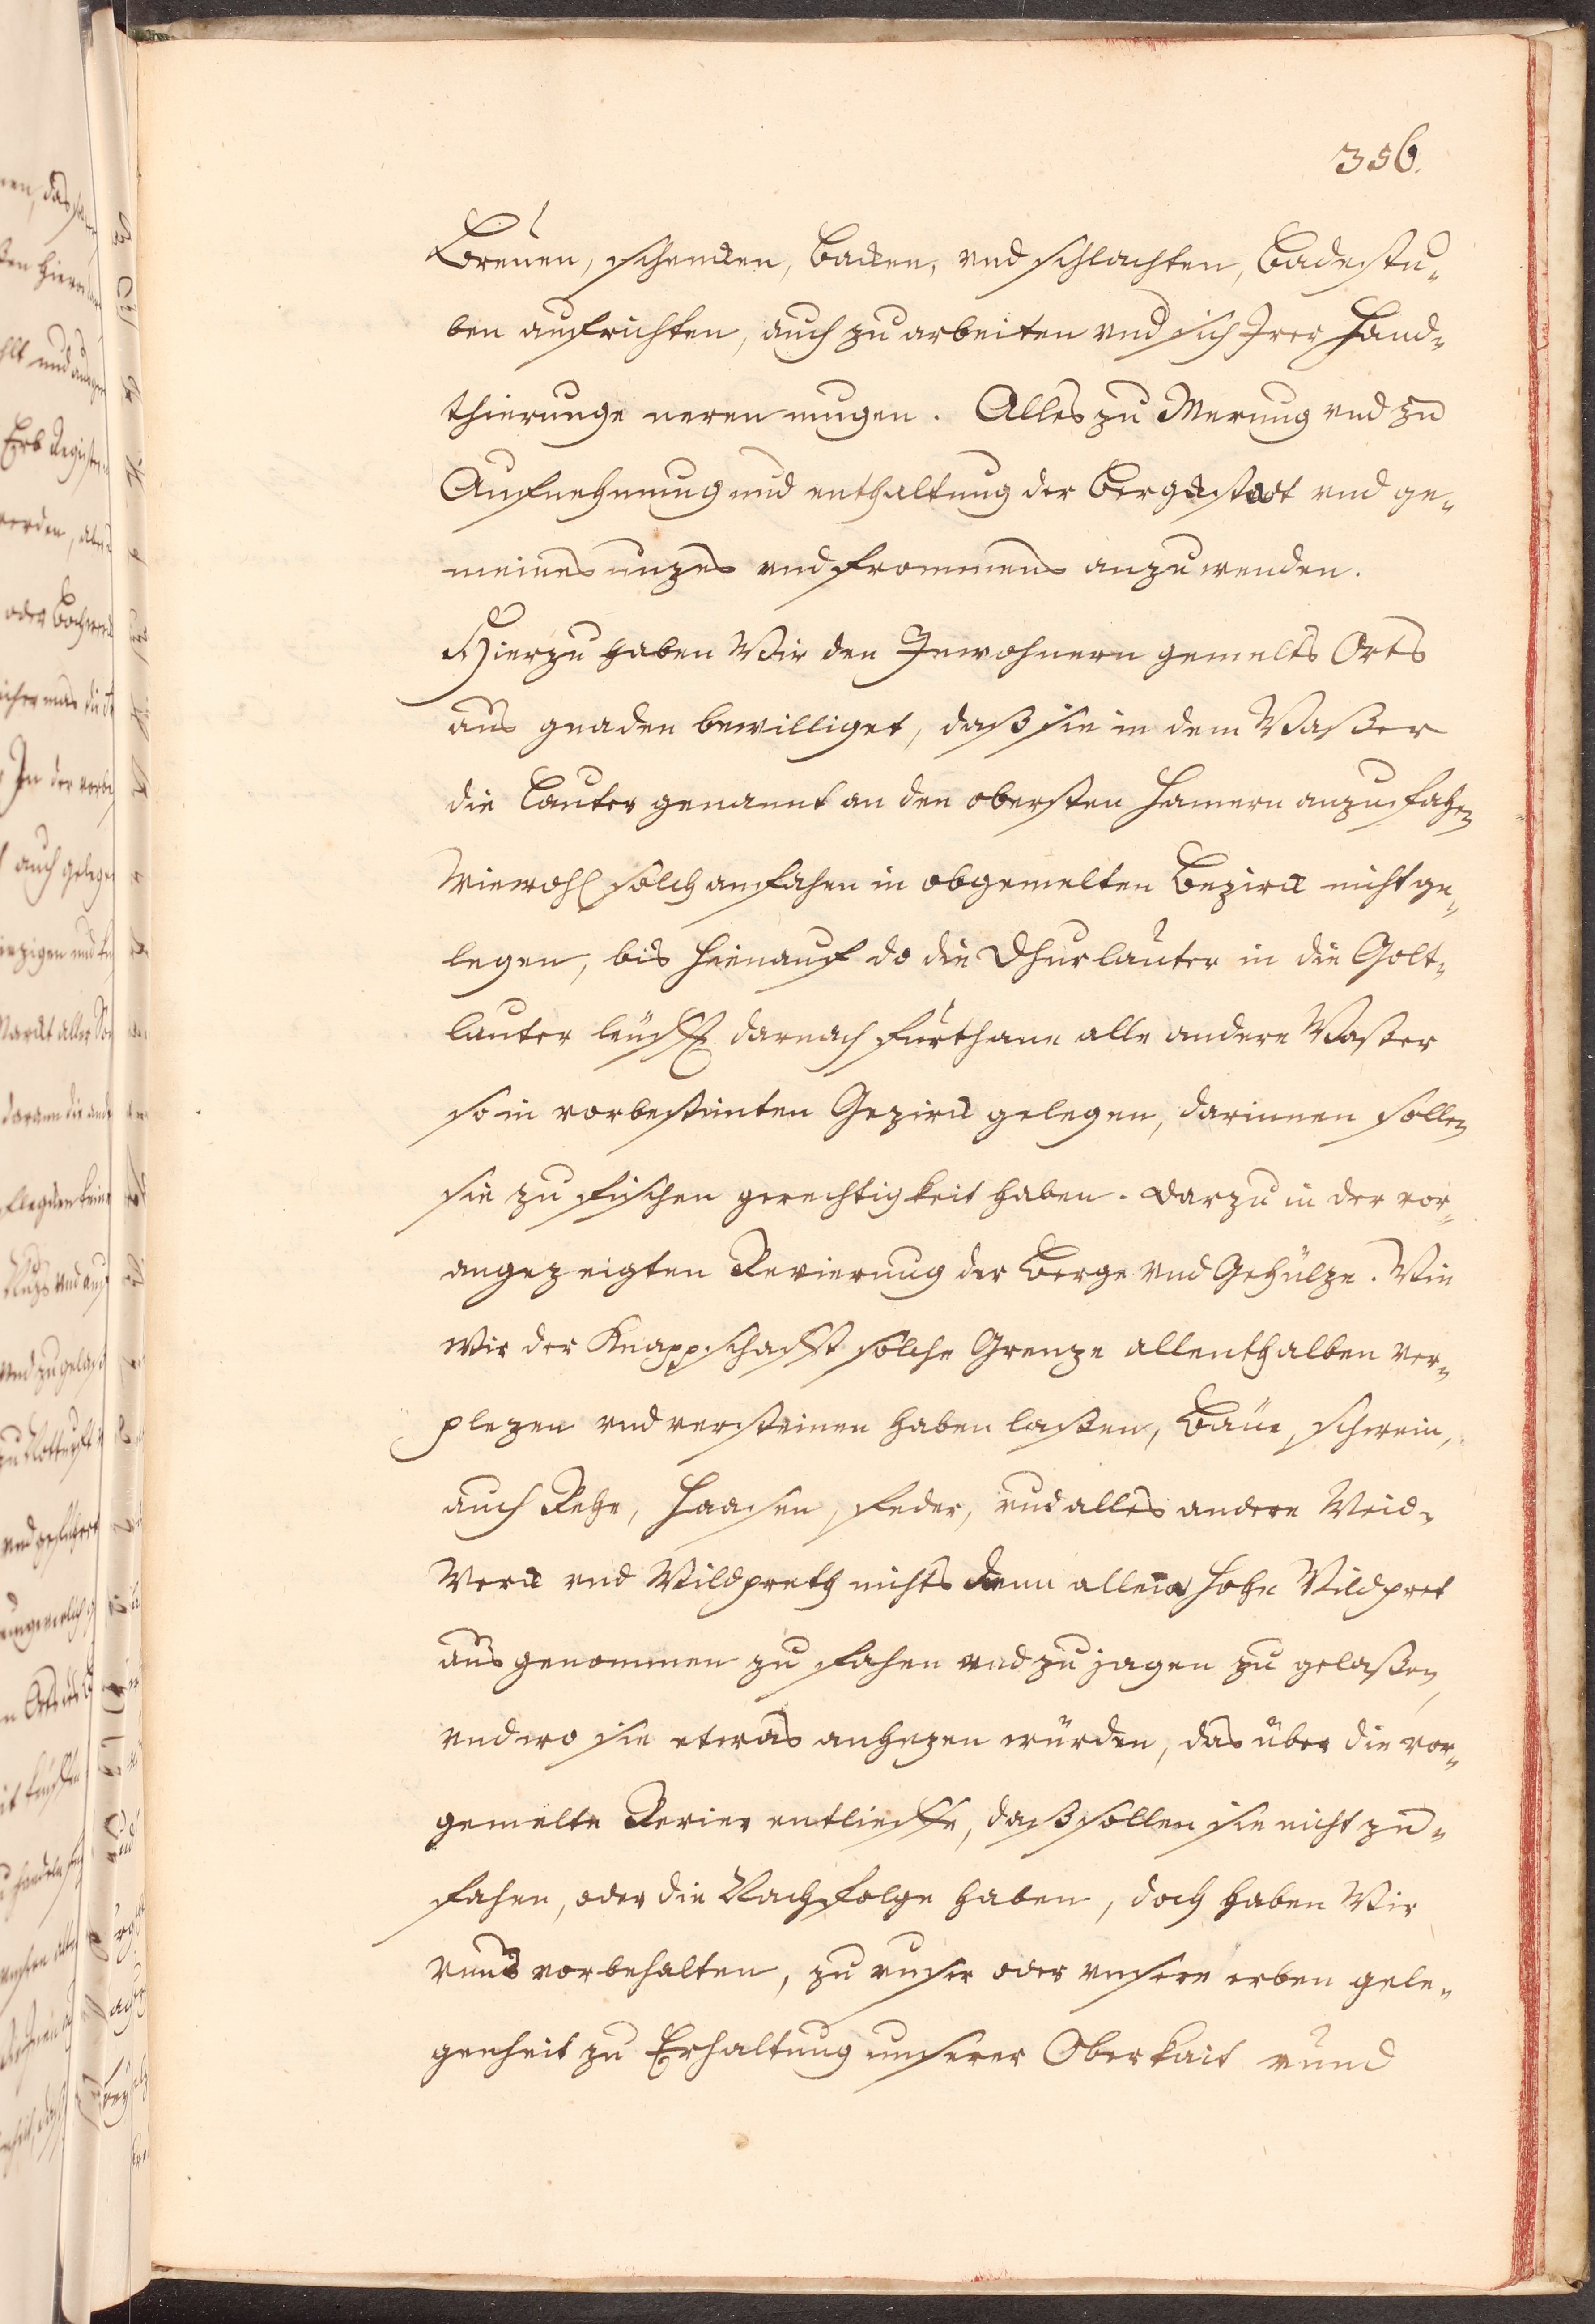 356.
Breuen, schencken, backen, vnd schlachten, badestu-
ben auffrichten, auch zu arbeiten vnd sich Jrer Hand-
thierunge neren mugen. Alles zu Merung vnd zu
Aufnehmung und enthaltung der Bergkstadt vnd ge-
meines nuzes vnd frommens anzuwenden.
Hierzu haben Wir den Inwohnern gemelts Orts
aus gnaden bewilliget, daß sie in dem Waßer
die Lauter genannt an den obersten Hamern anzufahen
Wiewohl solch anfahen in obgemelten Bezirck nicht ge-
legen, bis hienauf do die Dhurlauter in die Golt-
lauter leüfft darnach fürthane alle andere Waßer
so in vorbestimten Gezirck gelegen, darinnen sollen
sie zu fischen gerechtigkeit haben. darzu in der vor-
angezeigten Revierung der Berge vnd Gehülze. Wie
Wir der Knappschafft solche Grenze allenthalben ver-
plezen vnd versteinen haben laßen, Bäue, schwein,
auch Rehe, Haasen, feder, vnd alles andere Weid-
Werck vnd Wildpreth nichts denn allein hohe Wildpret
ausgenommen zu fahen vnd zu jagen zu gelaßen,
vnd wo sie etwas anhezen würden, das über die vor-
gemelte Revier entlieffe, daß sollen sie nicht zu-
fahen, oder die Nachfolge haben, doch haben Wir
vnns vorbehalten, zu vnser oder vnsere erben gele-
genheit zu Erhaltung unserer Oberkait vnnd